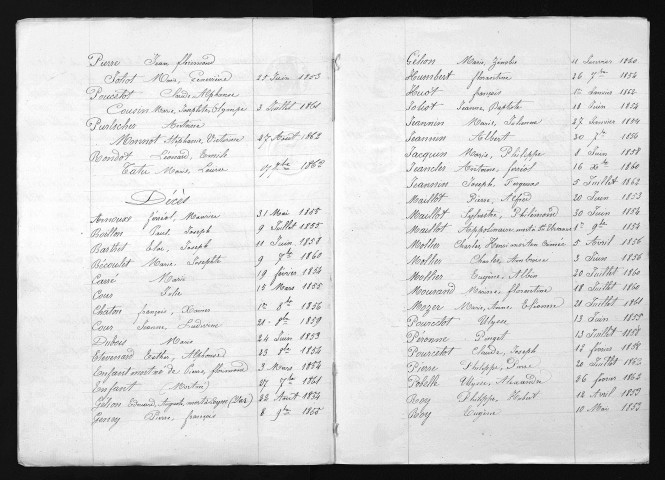 Pierre Jean
Joliot Marie, 25 Juin 1853
Pourcelot Claude Alphonse
Cousin Marie Josephte, Olympe 3 Juillet 1861
Purtscher Antoine
Monnot Stéphanie, Victorine 27 Août 1862
Rondot Léonard, Ernest
Marie, Laure 1862
Décès
Arnoux féréol, Maurice 31 Mai 1855
Boillon Paul Joseph 9 Juillet 1855
Barthet Eloi, Joseph 11 Juin 1858
Bécoulet Marie Josephte 9 7bre 1860
Carré Marie 19 février 1854
Cour Julie 15 Mars 1855
Chatou françois, Xavier 1er 8bre 1856
Cour Jeanne, Ludivine 21 8bre 1859
Dubois Marie 24 Juin 1853
Alphonse 23 8bre 1854
Enfant mort-né de 3 Mars 1854
Enfant Mortné 27 7bre 1861
Gélion Edouard, Auguste, mort à 22 Août 1854
Genoy Pierre, françois 8 9bre 1865
Gélion Marie, Zénobie 11 Janvier 1860
Humbert florentine 26 7bre 1854
Huot françois 12 Janvier 1854
Joliot Jeanne, Baptiste 18 Juin 1854
Jeannin Marie, Julienne 27 Janvier 1854
Jeannin Albert 30 7bre 1856
Jacquin Marie, Philippe 8 Juin 1858
Jeancler Antoine, féréol 16 Xbre 1860
Jeannin Joseph, 5 Juillet 1862
Maillot Pierre, Alfred 20 Juin 1853
Maillot Sylvestre, Philimond 30 Juin 1854
Maillot Appolinaire mort à 1er 9bre 1854
Mollier Charles Henri mort en Crimée 5 Avril 1856
Mollier Charles, Ambroise 3 Juin 1856
Mollier Eugène, Albin 20 Juillet 1860
Mourand Marie, florentine 18 Juillet 1860
Mozer Marie, Anne Etienne 21 Juillet 1861
Pourcelot Ulysse 13 Juin 1855
Péronne 13 Juillet 1858
Pourcelot Claude, Joseph 12 février 1858
Pierre Philippe, 20 Juillet 1862
Pobelle Ulysse, Alexandre 26 février 1862
Roy Philippe, 12 Avril 1853
Roy Eugène 10 Mai 1853